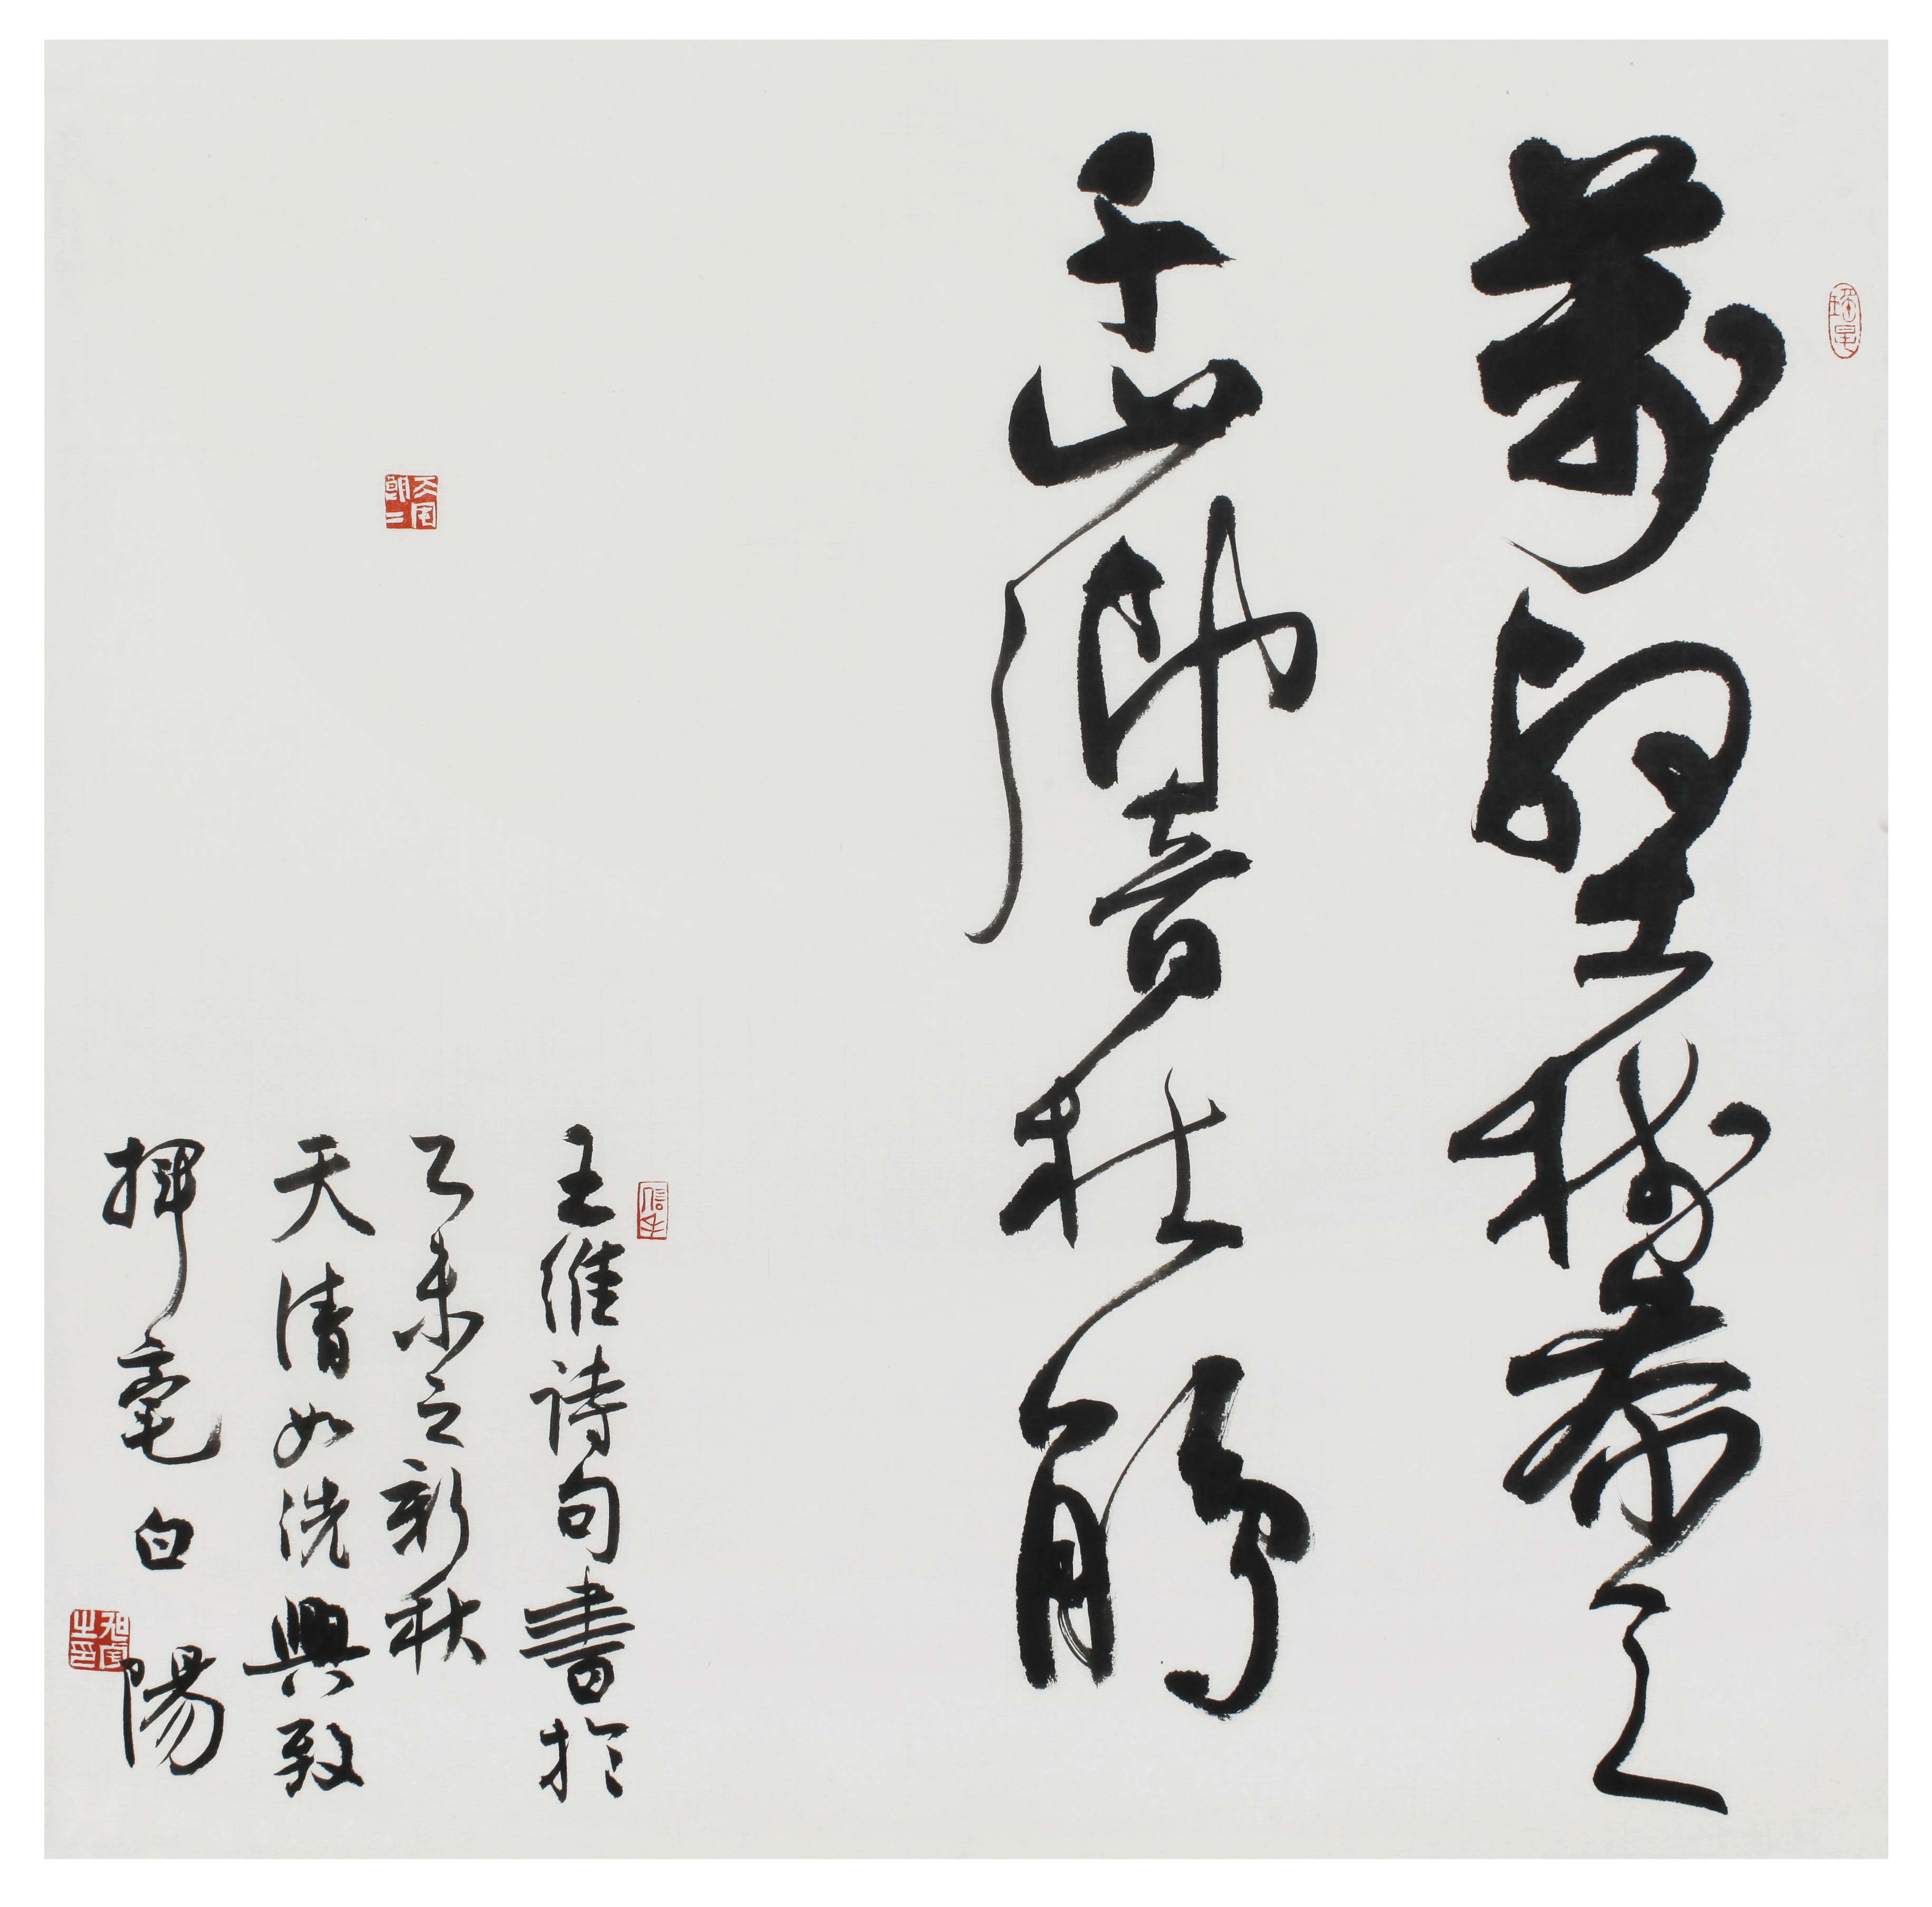 萬壑樹參天
千山響杜鵑
王維詩句書於
乙未之新秋
天清如洗興致
揮毫白陽